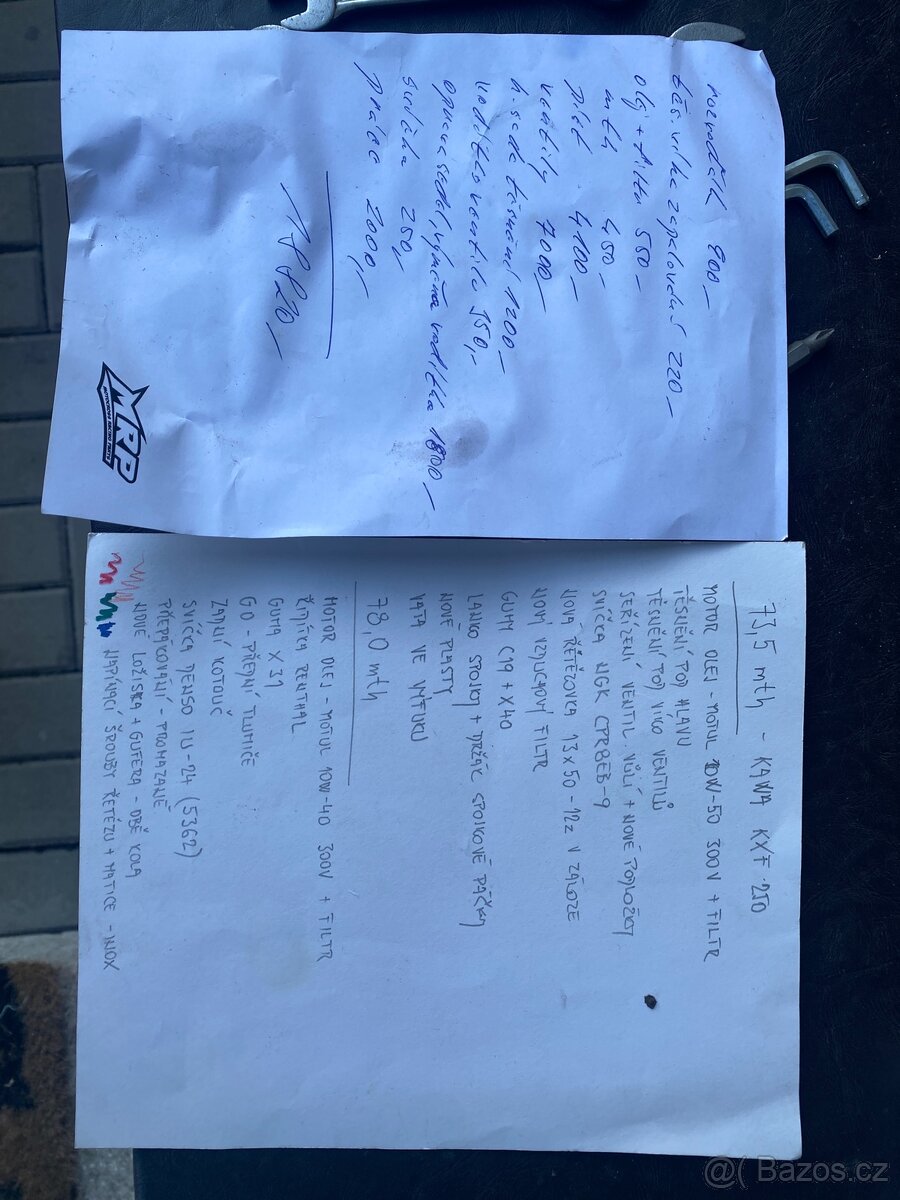 rozvoďák 800,-
těs. víka zapalování 220,-
olej + filtr 550,-
mth 450,-
píst 4100,-
ventily 7000,-
hlava těsnění 1200,-
vodítko ventilu 950,-
oprava sedel, výměna vodítka 1800,-
svíčka 250,-
práce 2000,-
MRP
73,5 mth - KAWA KXF·250
MOTOR OLEJ - MOTUL 10W-50 300V + FILTR
TĚSNĚNÍ POD HLAVU
TĚSNĚNÍ POD VÍKO VENTILŮ
SEŘÍZENÍ VENTIL. VŮLÍ + NOVÉ PODLOŽKY
SVÍČKA NGK CPR8EB-9
NOVÁ ŘETĚZOVKA 13x50 - 12z V ZÁLOZE
NOVÝ VZDUCHOVÝ FILTR
GUMY C19 + X40
LANKO SPOJKY + DRŽÁK SPOJKOVÉ PÁČKY
NOVÉ PLASTY
VATA VE VÝFUKU
78,0 mth
MOTOR OLEJ - MOTUL 10W-40 300V + FILTR
ŘÍDÍTKA RENTHAL
GUMA X31
GO - PŘEDNÍ TLUMIČE
ZADNÍ KOTOUČ
SVÍČKA DENSO IU-24 (5362)
PŘEPÁKOVÁNÍ - PROMAZANÉ
NOVÉ LOŽISKA + GUFERA - OBĚ KOLA
NAPÍNACÍ ŠROUBY ŘETĚZU + MATICE - INOX
@( Bazos.cz